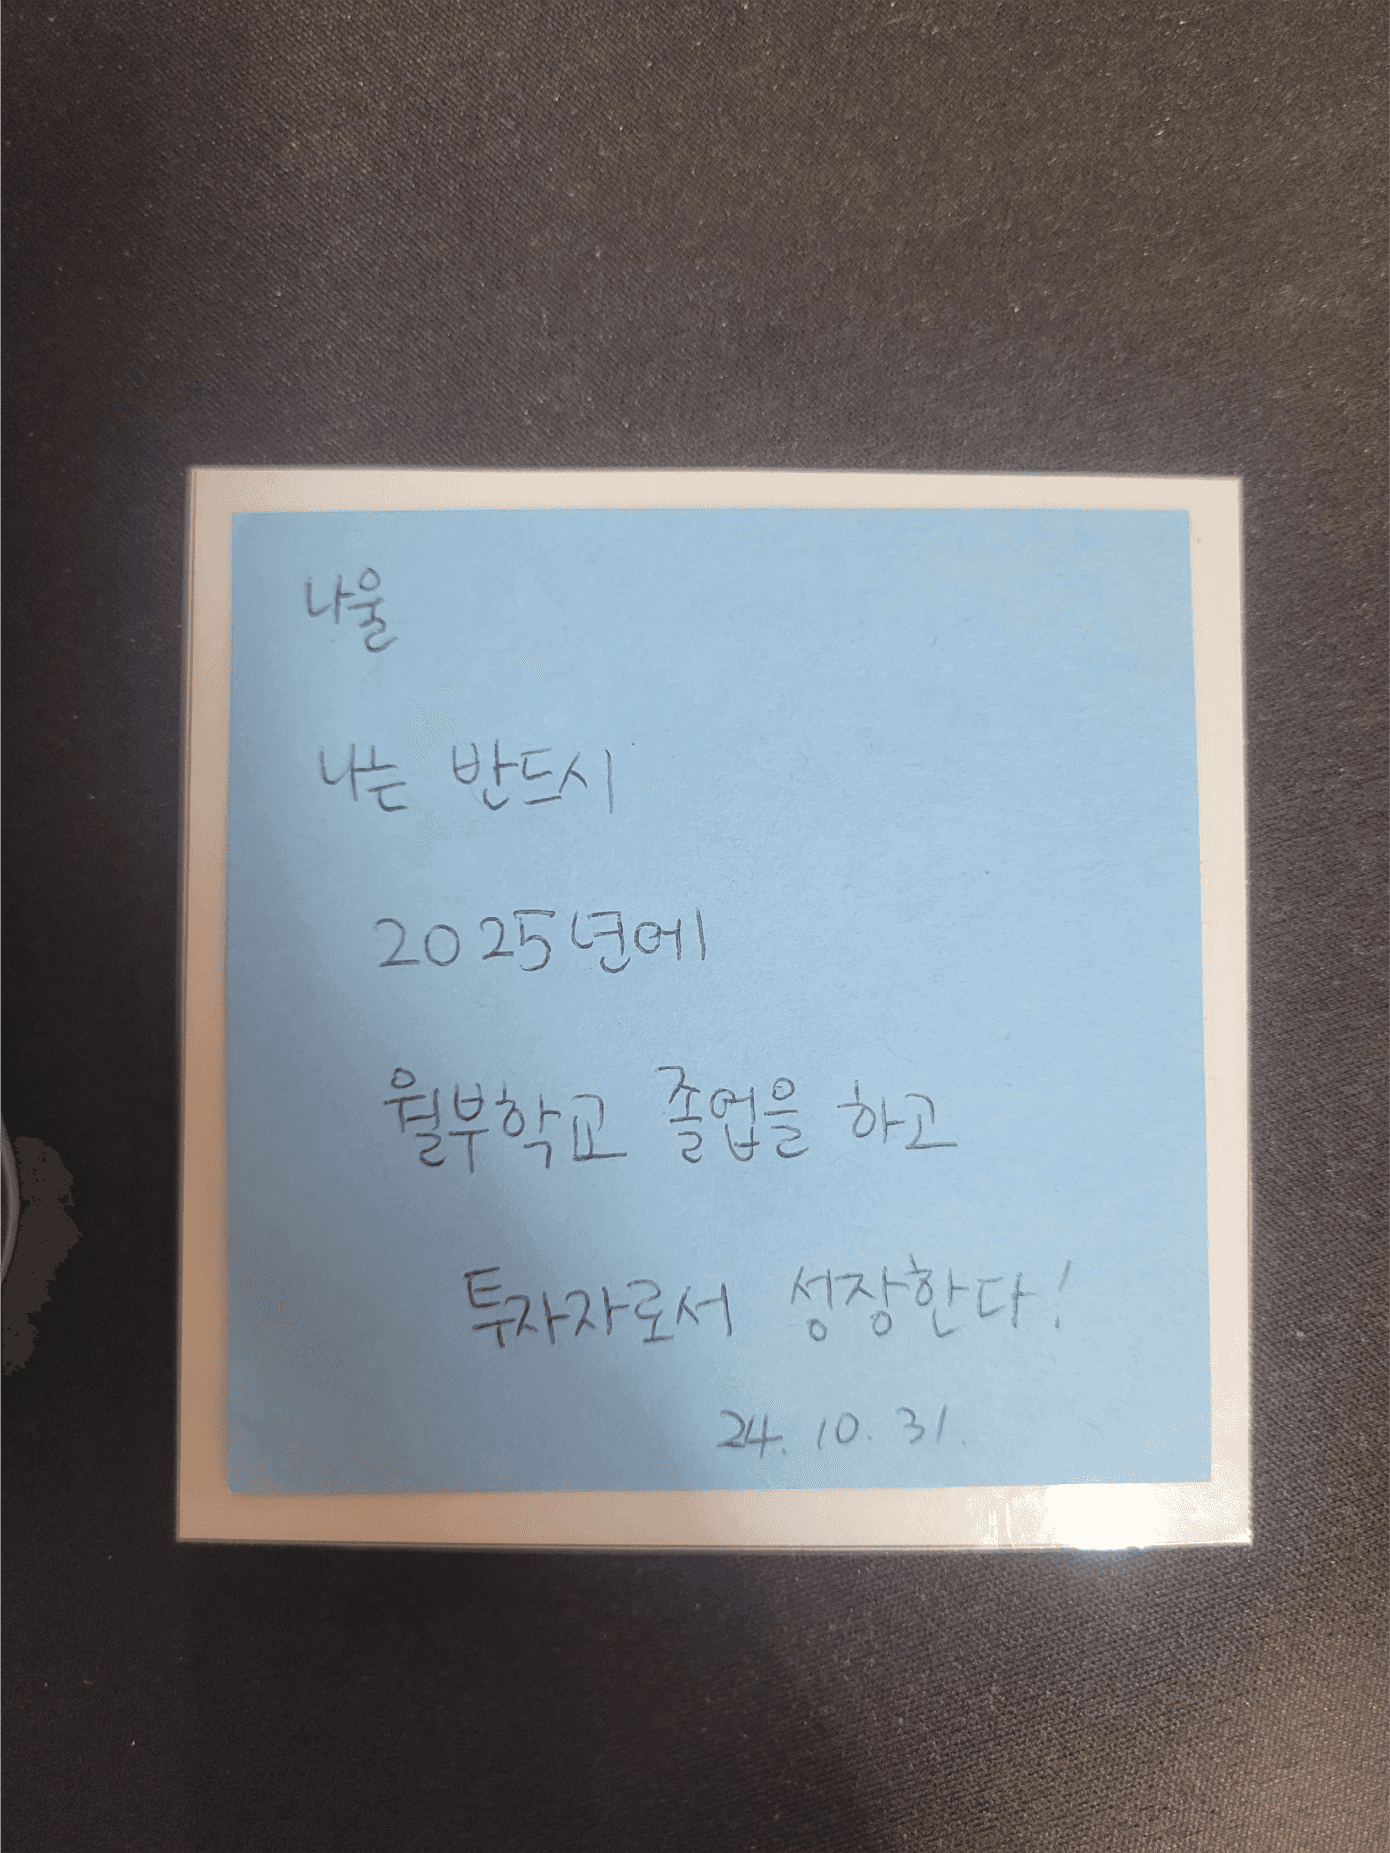 나울
나는 반드시
2025년에
월부학교 졸업을 하고
투자자로서 성장한다!
24. 10. 31.